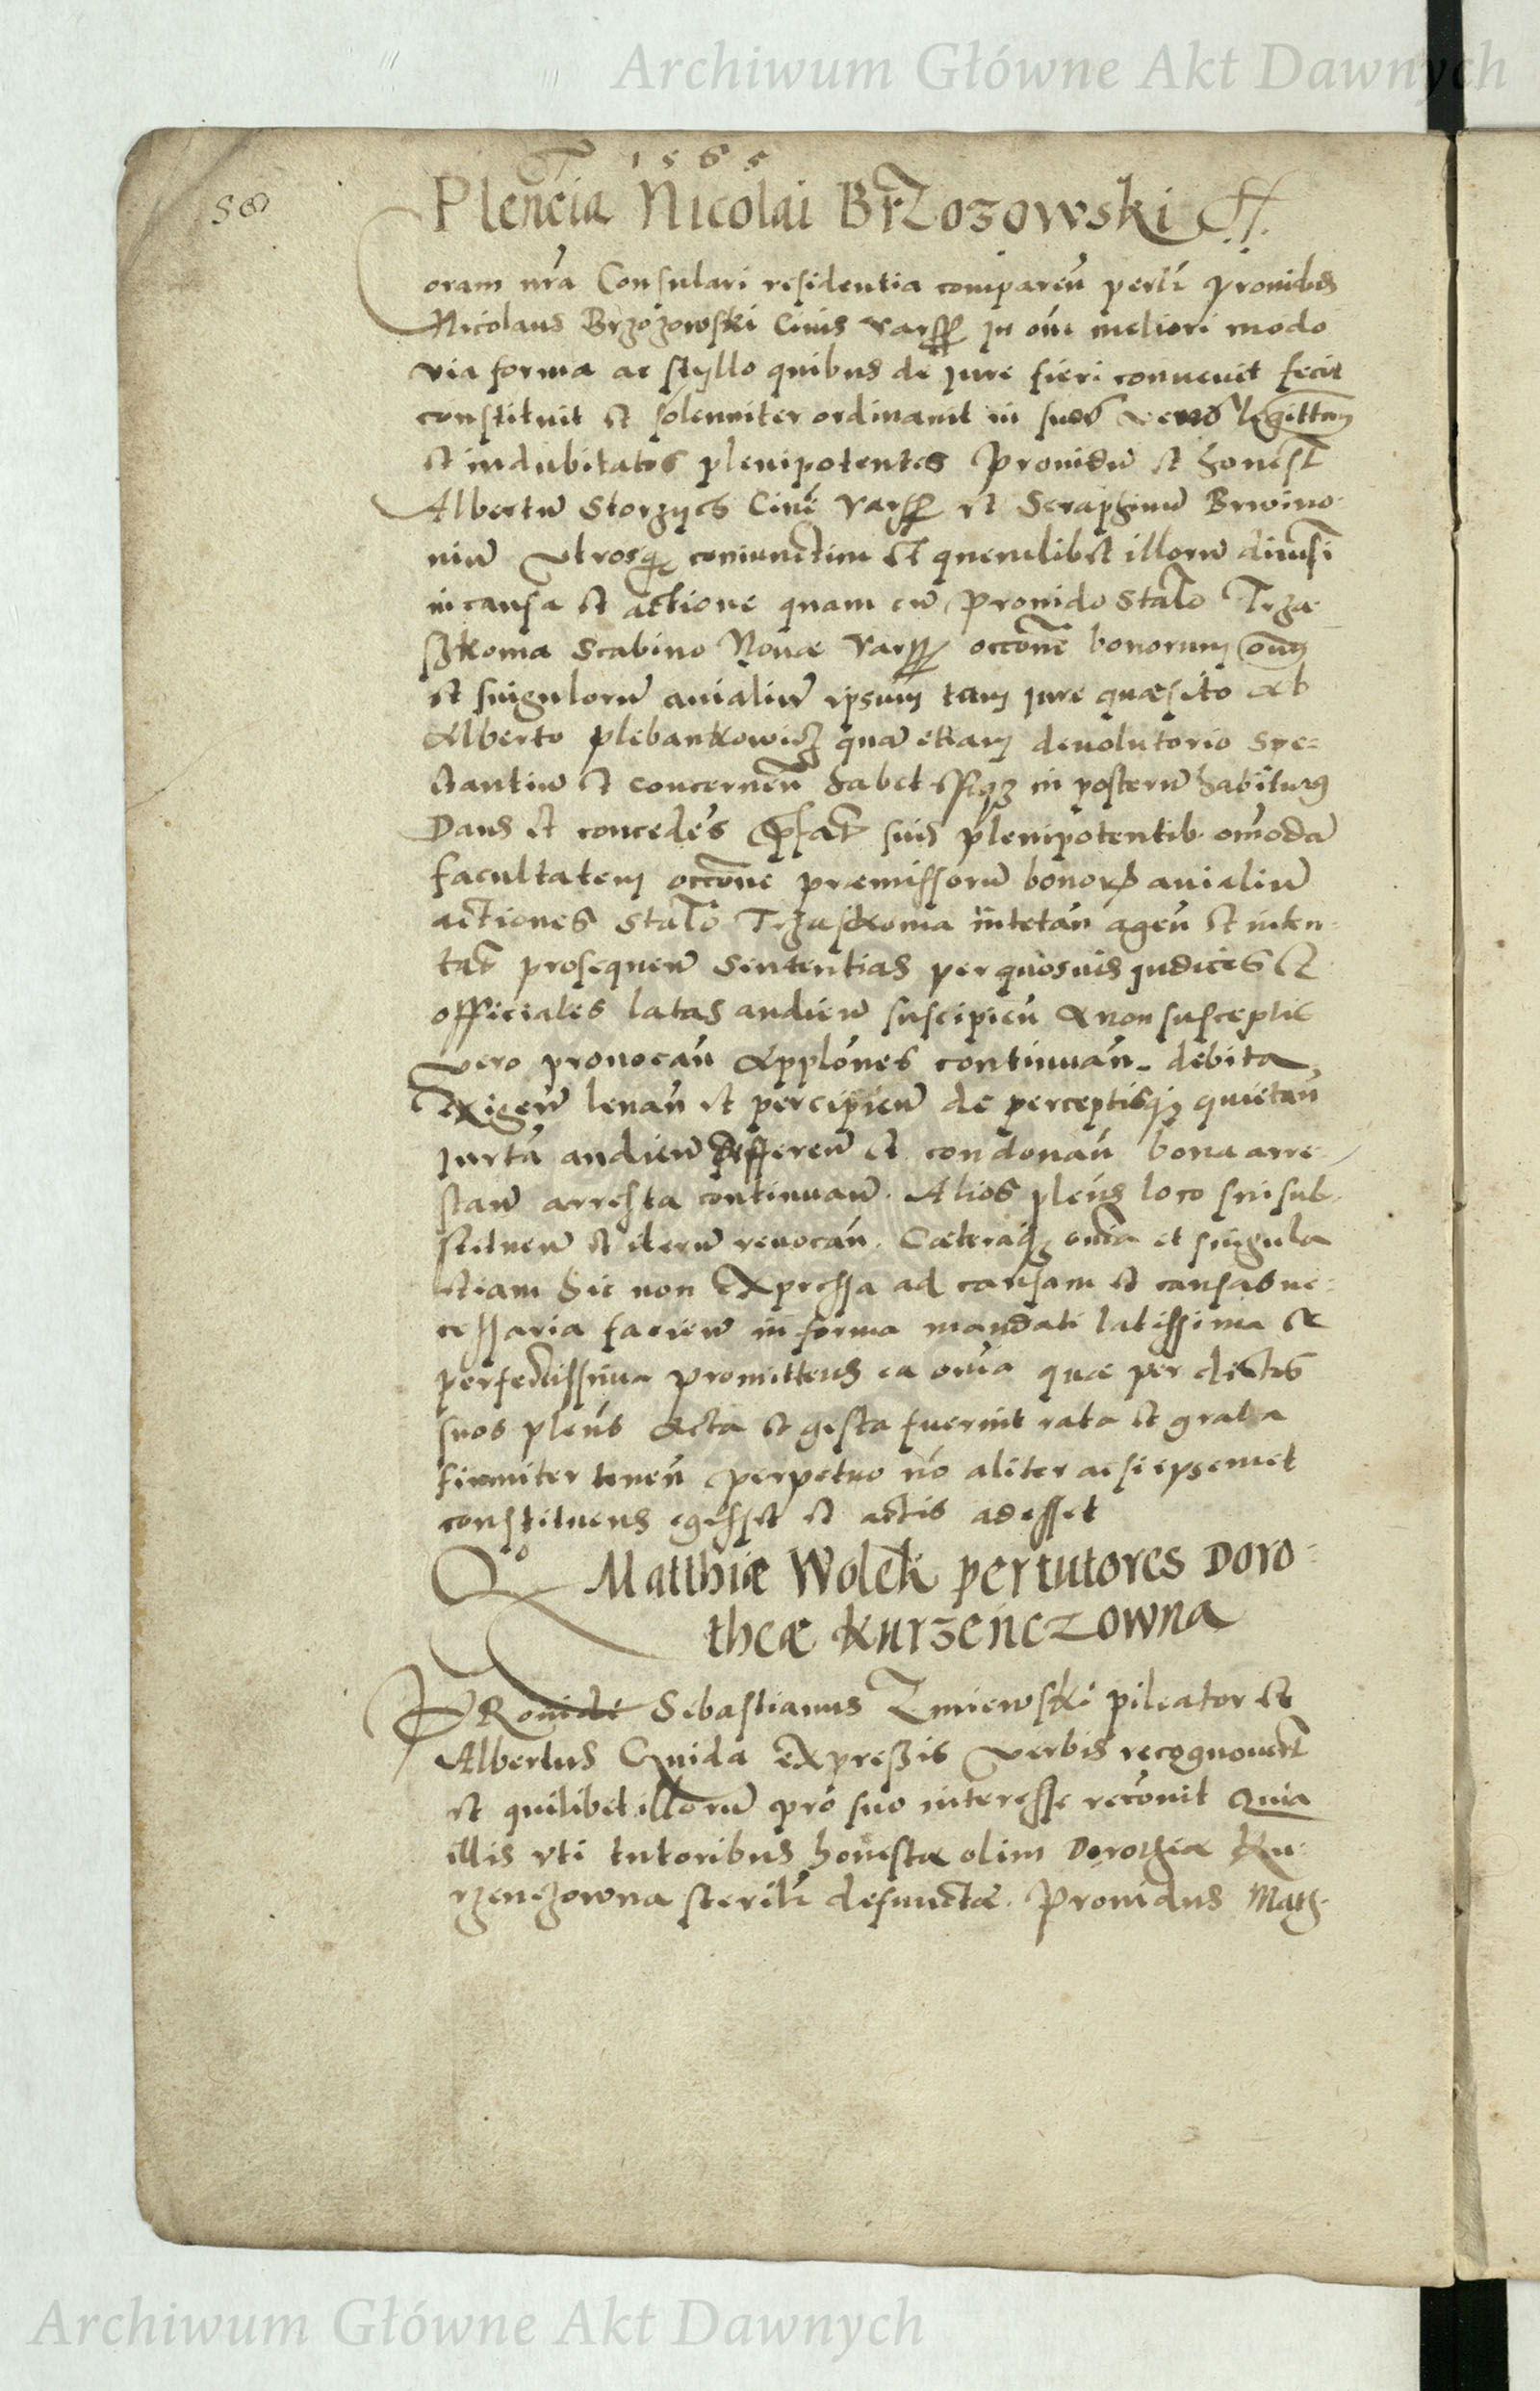 Archiwum Główne Akt Dawnych
1565
58
Plencia Nicolai Brzozowski
Coram nra Consulari residentia comparen perlr Prouidus
Nicolaus Brzozowski Ciuis Vars in oni meliori modo
via forma ac styllo quibus de iure fieri conuenit fecit
constituit et solenniter ordinauit in suos veros legittim
et indubitatos plenipotentes Prouidu et honest
Albertu Storzycs Ciue Vars et Seraphinu Brwino-
niu vtrosq coniunctim et quemlibet illoru diuisi
in causa et actione quam cu Prouido Stalo Trza-
szkoma Scabino Nouae Vars occone bonorum oniu
et singuloru auialiu ipsum tam iure quaesito ab
Alberto Plebankowicz qua etiam deuolutorio spe=
ctantiu et concernen habet in posteru habiturus
Dans et concedes pfat suis plenipotentib omoda
facultatem occone praemissoru bonoru auialiu
actiones Stalo Trzaskoma intetan agen et inten-
tat prosequen sententias per quosuis iudices et
officiales latas audien suscipien & non susceptis
vero prouocan Applones continuan debita
exigen leuan et percipien de perceptisq quietan
iurta audien defferen et condonan bona arre-
stan arresta continuan. Alios plens loco sui sub-
stituen et iteru reuocan. Caeteraq onia et singula
etiam hic non expressa ad causam et causas ne-
cessaria facien in forma mandati latissima et
perfectissima Promittens ea onia quae per dictos
suos plens acta et gesta fuerint rata et grata
firmiter tenen perpetuo no aliter ac si ipsemet
constituens egisset et actis adesset
Qo Matthiae Wolek per tutores Doro-
theae Kurzenczowna
PRouidi Sebastianus Zmiewski pileator et
Albertus Gnida expressis verbis recognouert
et quilibet illoru pro suo interesse recouit Quia
illis vti tutoribus honestae olim Dorotheae Ku-
rzenczowna sterilr defunctae. Prouidus Math-
Archiwum Główne Akt Dawnych